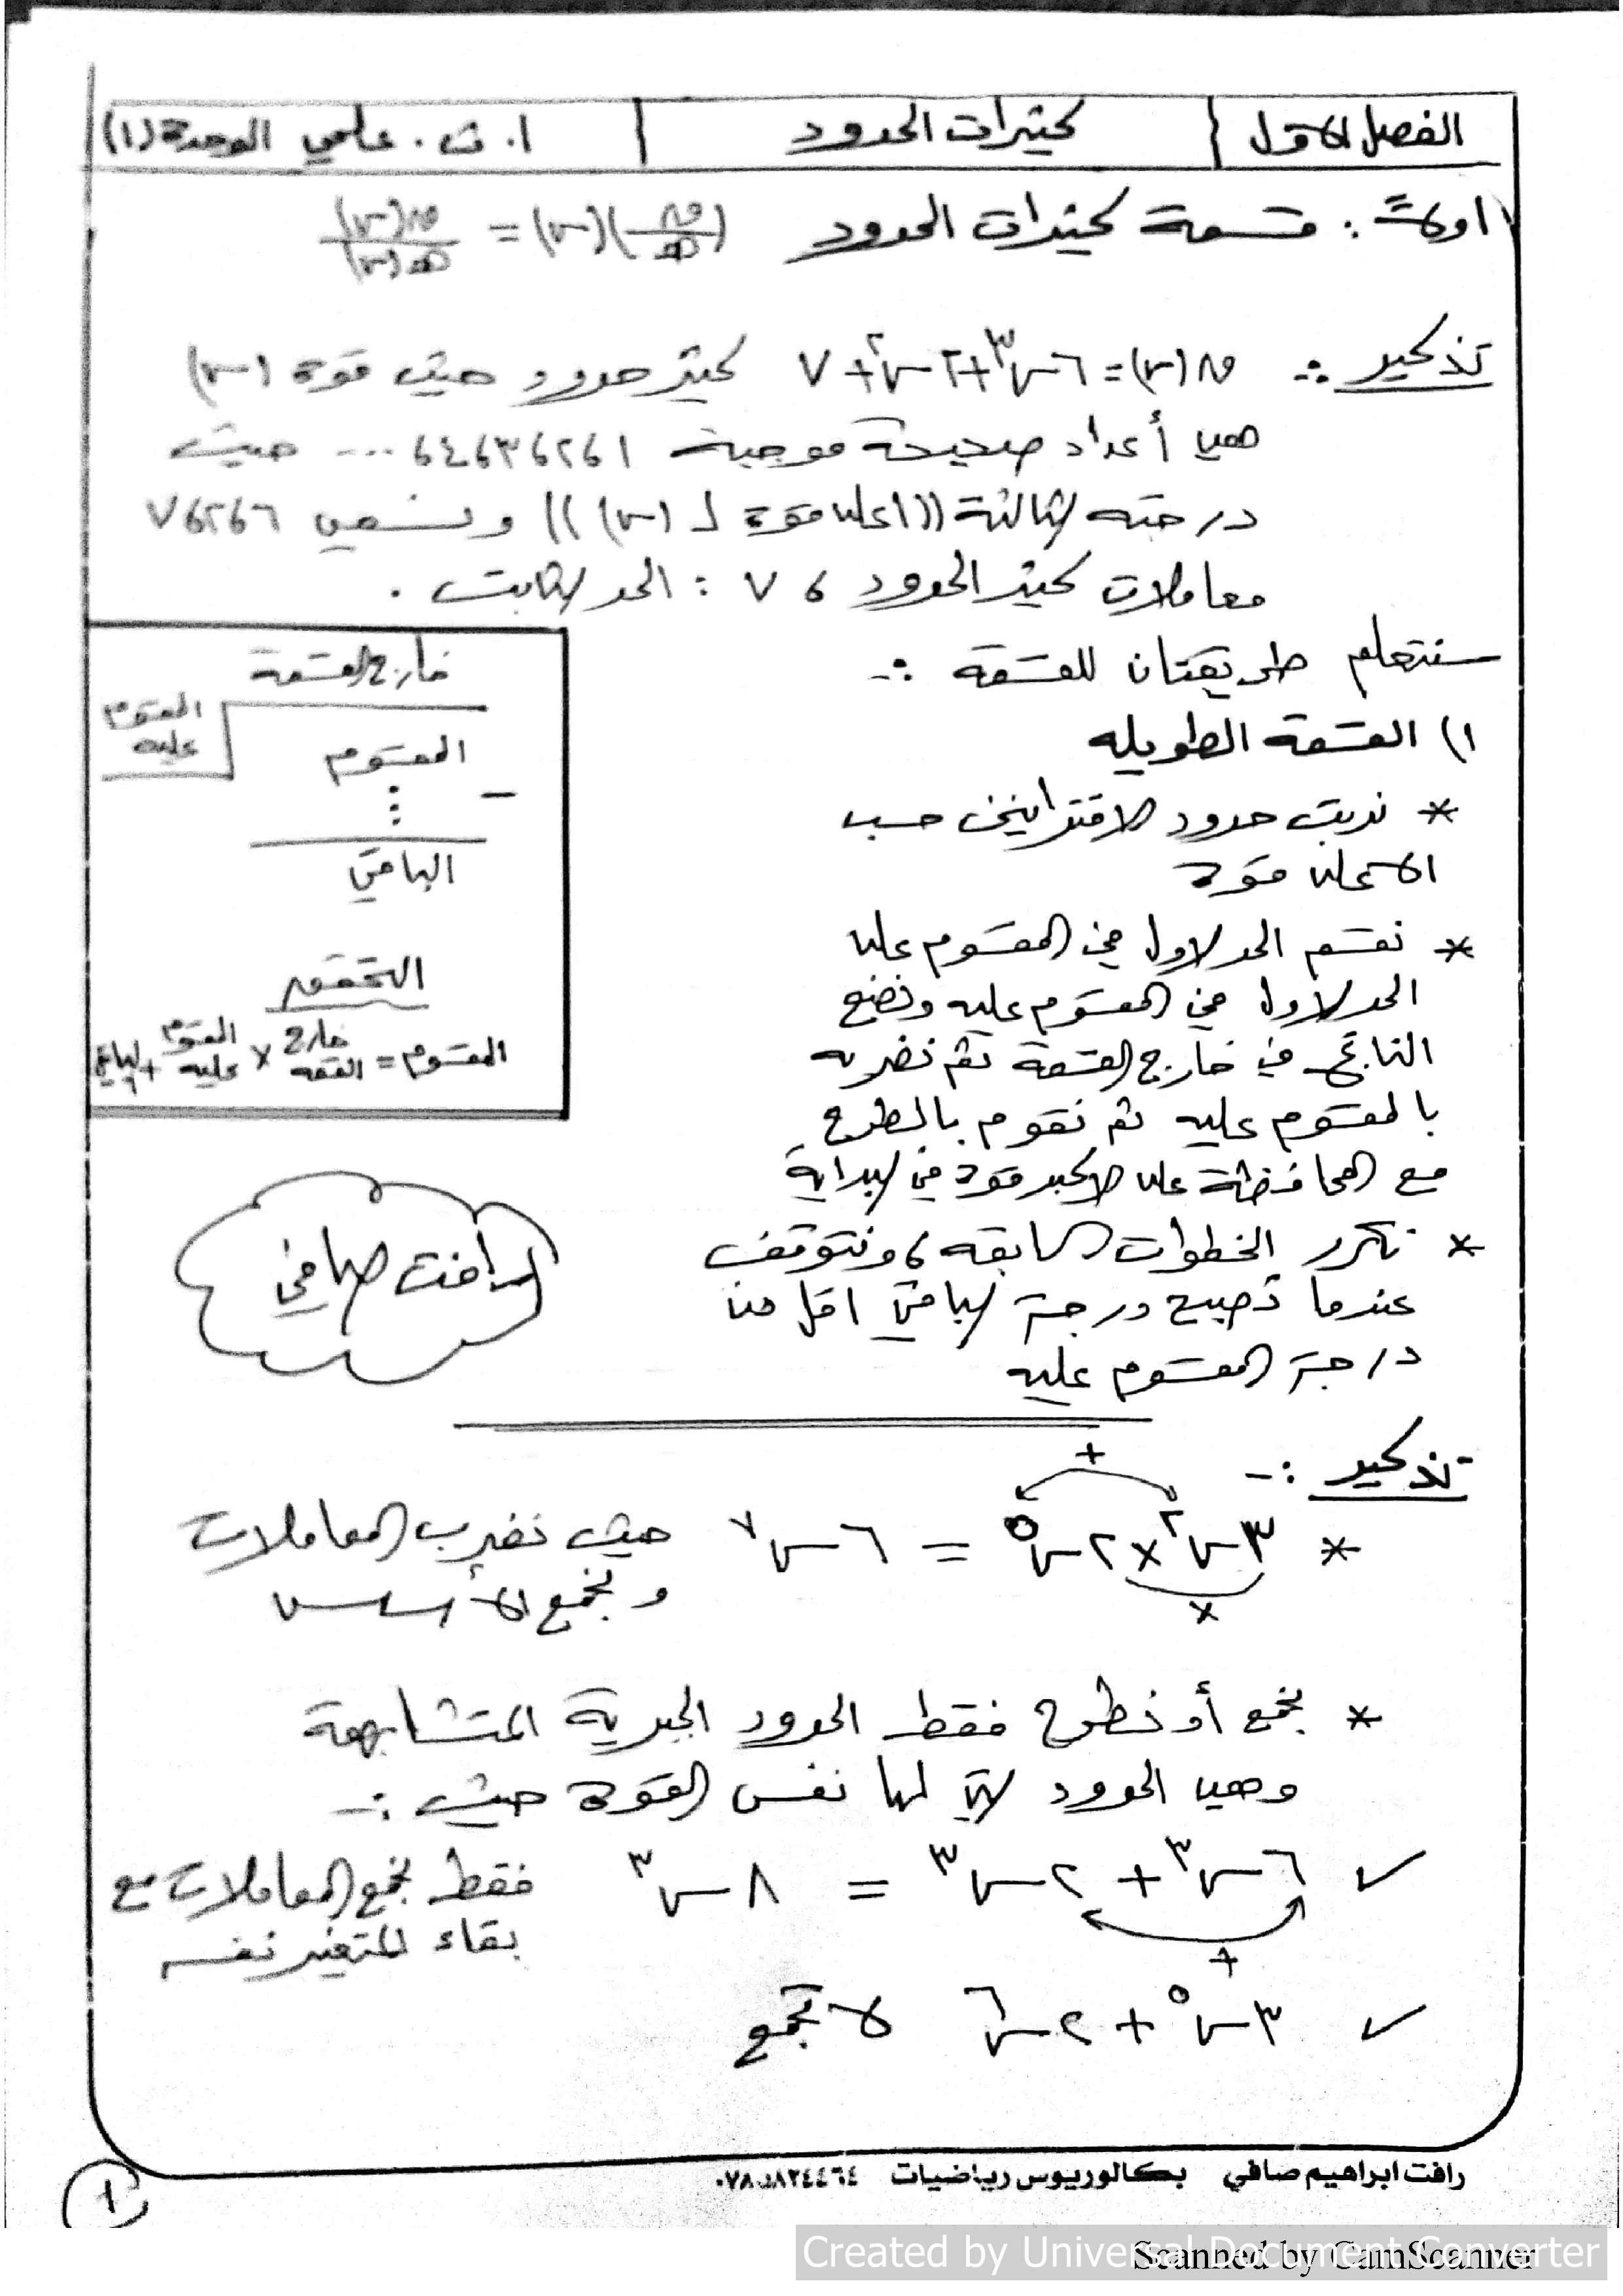 الفصل الأول | كثيرات الحدود | ا . ث . علمي الوحدة (١)
اولاً : قسمة كثيرات الحدود (ق/هـ)(س) = ق(س)/هـ(س)
تذكير :- ق(س) = ٦س٣ + ٢س٢ + ٧ كثير حدود حيث قوة (س)
هي أعداد صحيحة موجبة ١ ، ٢ ، ٣ ، ٤ ، ... حيث
درجته الثالثة ((اعلى قوة لـ (س))) ونسمي ٦ ، ٢ ، ٧
معاملات كثير الحدود ، ٧ : الحد الثابت .
سنتعلم طريقتان للقسمة :-
١) القسمة الطويله
* نرتب حدود الاقترانين حسب
الأعلى قوة
* نقسم الحد الاول في المقسوم على
الحد الاول في المقسوم عليه ونضع
الناتج في خارج القسمة ثم نضربه
بالمقسوم عليه ثم نقوم بالطرح
مع المحافظة على الاكبر قوة في البداية
* نكرر الخطوات السابقه ، ونتوقف
عندما تصبح درجة الباقي اقل من
درجة المقسوم عليه
خارج القسمة
المقسوم
عليه
المقسوم
الباقي
التحقق
المقسوم = خارج القسمه × المقسوم عليه + الباقي
رافت صافي
تذكير :-
+
* ٣س٢ × ٢س٥ = ٦س٧ حيث نضرب المعاملات
×
ونجمع الأسس
* نجمع أو نطرح فقط الحدود الجبرية المتشابهة
وهي الحدود التي لها نفس القوة حيث :-
✓ ٦س٣ + ٢س٣ = ٨س٣ فقط نجمع المعاملات مع
بقاء المتغير نفسه
+
✓ ٣س٥ + ٢س٦ لا تجمع
رافت ابراهيم صافي بكالوريوس رياضيات
١
Created by Universal Document Converter
Scanned by CamScanner